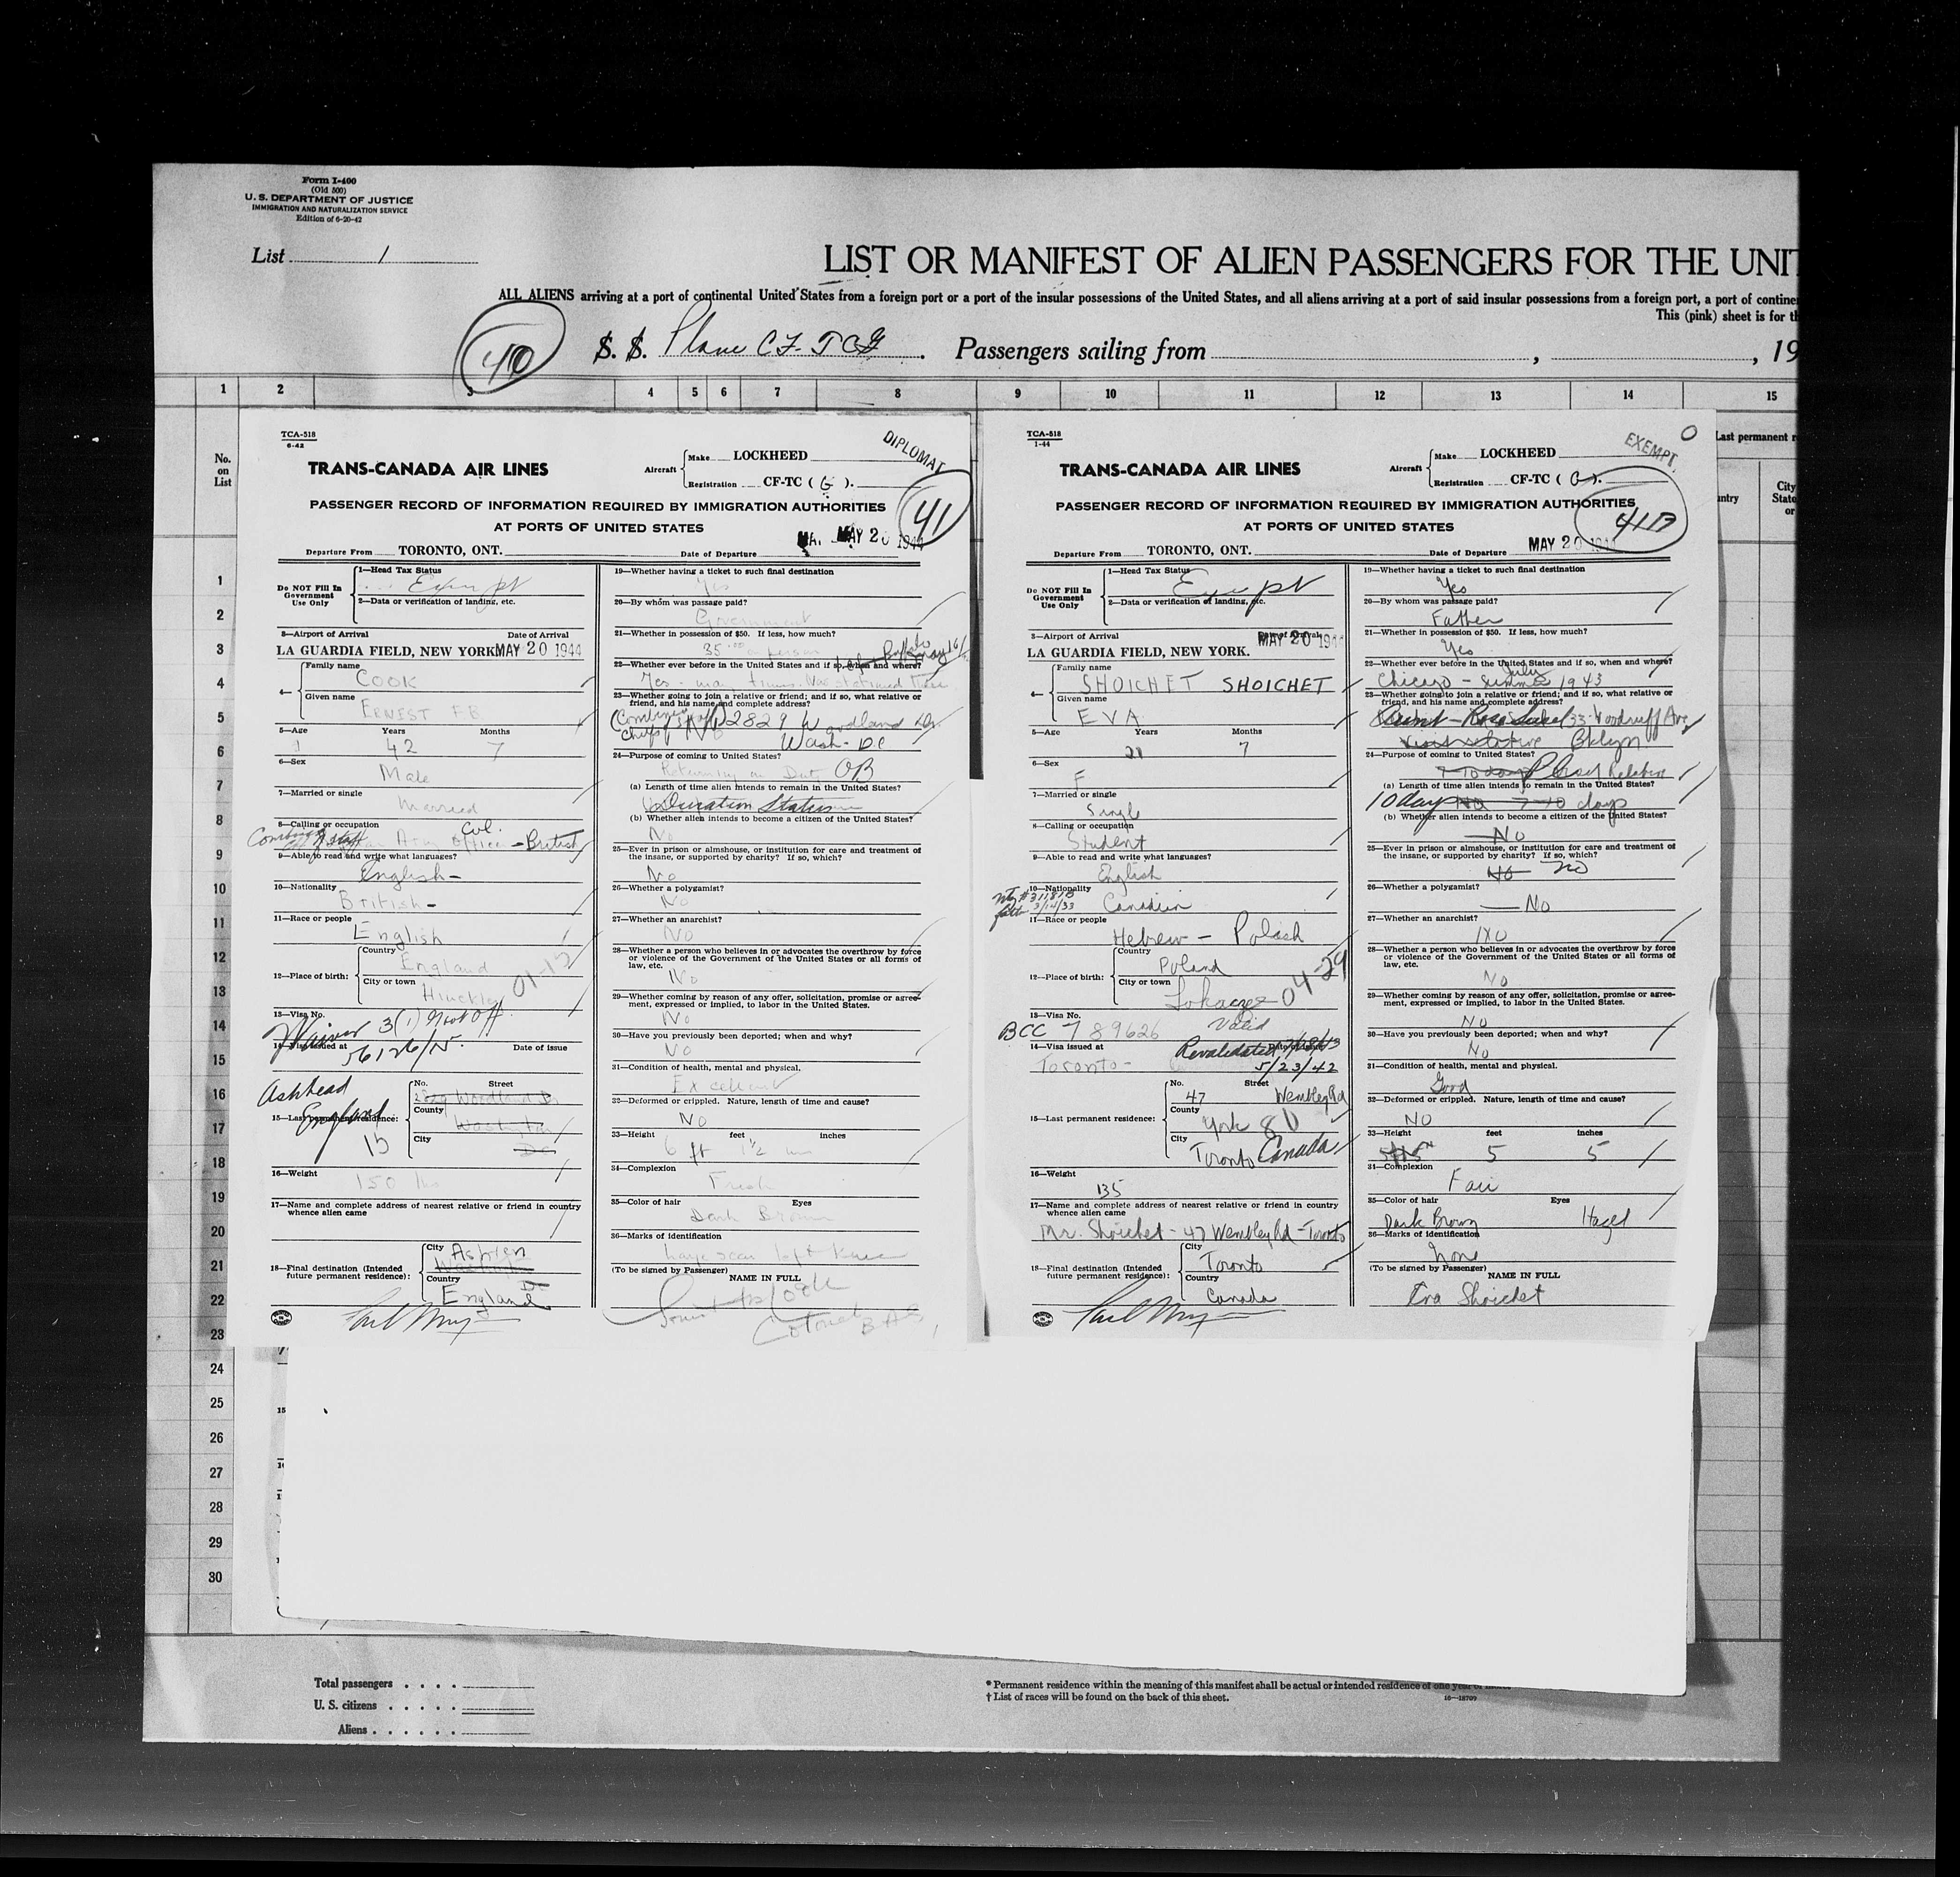 Form I-400
(Old 500)
U. S. DEPARTMENT OF JUSTICE
IMMIGRATION AND NATURALIZATION SERVICE
Edition of 6-20-42
List 1
LIST OR MANIFEST OF ALIEN PASSENGERS FOR THE UNIT
ALL ALIENS arriving at a port of continental United States from a foreign port or a port of the insular possessions of the United States, and all aliens arriving at a port of said insular possessions from a foreign port, a port of contine
This (pink) sheet is for th
40
S. S. Plane CF-TCG. Passengers sailing from , , 19
1 2 3 4 5 6 7 8 9 10 11 12 13 14 15
No. on List
Last permanent r
untry
City
State
or
TCA-518
6-42
TRANS-CANADA AIR LINES
Aircraft
Make LOCKHEED
Registration CF-TC ( G ).
DIPLOMAT
41
PASSENGER RECORD OF INFORMATION REQUIRED BY IMMIGRATION AUTHORITIES
AT PORTS OF UNITED STATES
Departure From TORONTO, ONT.
Date of Departure MAY 20 1944
Do NOT Fill In
Government
Use Only
1—Head Tax Status
Exempt
2—Data or verification of landing, etc.
3—Airport of Arrival Date of Arrival
LA GUARDIA FIELD, NEW YORK MAY 20 1944
4—
Family name
COOK
Given name
ERNEST F.B.
5—Age Years Months
42 7
6—Sex
Male
7—Married or single
Married
8—Calling or occupation
Col.
Army Officer - British
9—Able to read and write what languages?
English-
10—Nationality
British-
11—Race or people
English
12—Place of birth:
Country
England
City or town
Hinckley
01-12
13—Visa No.
Waiver 3(1)
14—Visa issued at Date of issue
56126/15
Ashhead
England
15—Last permanent residence:
No. Street
2829 Woodland Dr
County
Washington
City
DC
15
16—Weight
150 lbs
17—Name and complete address of nearest relative or friend in country
whence alien came
18—Final destination (Intended
future permanent residence):
City
Country
England
19—Whether having a ticket to such final destination
Yes
20—By whom was passage paid?
Government
21—Whether in possession of $50. If less, how much?
35.00 on person
22—Whether ever before in the United States and if so, when and where?
Yes - many times.
23—Whether going to join a relative or friend; and if so, what relative or
friend, and his name and complete address?
2829 Woodland Dr.
Wash-DC
24—Purpose of coming to United States?
Returning on Duty OB
(a) Length of time alien intends to remain in the United States?
Duration Status
(b) Whether alien intends to become a citizen of the United States?
No
25—Ever in prison or almshouse, or institution for care and treatment of
the insane, or supported by charity? If so, which?
No
26—Whether a polygamist?
No
27—Whether an anarchist?
No
28—Whether a person who believes in or advocates the overthrow by force
or violence of the Government of the United States or all forms of
law, etc.
No
29—Whether coming by reason of any offer, solicitation, promise or agree-
ment, expressed or implied, to labor in the United States.
No
30—Have you previously been deported; when and why?
No
31—Condition of health, mental and physical.
Excellent
32—Deformed or crippled. Nature, length of time and cause?
No
33—Height feet inches
6 ft 1½ in
34—Complexion
Fresh
35—Color of hair Eyes
Dark Brown
36—Marks of identification
Large scar left knee
(To be signed by Passenger)
NAME IN FULL
Colonel
TCA-518
1-44
TRANS-CANADA AIR LINES
Aircraft
Make LOCKHEED
Registration CF-TC ( G ).
EXEMPT.
0
41B
PASSENGER RECORD OF INFORMATION REQUIRED BY IMMIGRATION AUTHORITIES
AT PORTS OF UNITED STATES
Departure From TORONTO, ONT.
Date of Departure MAY 20 1944
Do NOT Fill In
Government
Use Only
1—Head Tax Status
Exempt
2—Data or verification of landing, etc.
3—Airport of Arrival Date of Arrival
LA GUARDIA FIELD, NEW YORK. MAY 20 1944
4—
Family name
SHOICHET SHOICHET
Given name
EVA
5—Age Years Months
21 7
6—Sex
F
7—Married or single
Single
8—Calling or occupation
Student
9—Able to read and write what languages?
English
10—Nationality
Canadian
3/14/33
11—Race or people
Hebrew - Polish
12—Place of birth:
Country
Poland
City or town
04-29
13—Visa No.
BCC 789626 Valid
14—Visa issued at Date of issue
Toronto- Revalidated
5/23/42
15—Last permanent residence:
No. Street
47 Wembley Rd
County
York 80
City
Toronto Canada
16—Weight
135
17—Name and complete address of nearest relative or friend in country
whence alien came
Mr. Shoichet - 47 Wembley Rd - Toronto
18—Final destination (Intended
future permanent residence):
City
Toronto
Country
Canada
19—Whether having a ticket to such final destination
Yes
20—By whom was passage paid?
Father
21—Whether in possession of $50. If less, how much?
Yes
22—Whether ever before in the United States and if so, when and where?
July
Chicago - Summer 1943
23—Whether going to join a relative or friend; and if so, what relative or
friend, and his name and complete address?
Aunt - Rose 33-Woodruff Ave
Visit relative Bklyn
24—Purpose of coming to United States?
7-10 days Visit Relative
(a) Length of time alien intends to remain in the United States?
10 days No 7-10 days
(b) Whether alien intends to become a citizen of the United States?
No
25—Ever in prison or almshouse, or institution for care and treatment of
the insane, or supported by charity? If so, which?
No no
26—Whether a polygamist?
No
27—Whether an anarchist?
No
28—Whether a person who believes in or advocates the overthrow by force
or violence of the Government of the United States or all forms of
law, etc.
No
29—Whether coming by reason of any offer, solicitation, promise or agree-
ment, expressed or implied, to labor in the United States.
No
30—Have you previously been deported; when and why?
No
31—Condition of health, mental and physical.
Good
32—Deformed or crippled. Nature, length of time and cause?
NO
33—Height feet inches
5 5
34—Complexion
Fair
35—Color of hair Eyes
Dark Brown Hazel
36—Marks of identification
None
(To be signed by Passenger)
NAME IN FULL
Eva Shoichet
1
2
3
4
5
6
7
8
9
10
11
12
13
14
15
16
17
18
19
20
21
22
23
24
25
26
27
28
29
30
Total passengers . . . .
U. S. citizens . . . . .
Aliens . . . . . .
* Permanent residence within the meaning of this manifest shall be actual or intended residence of one year or more.
† List of races will be found on the back of this sheet.
16—18709